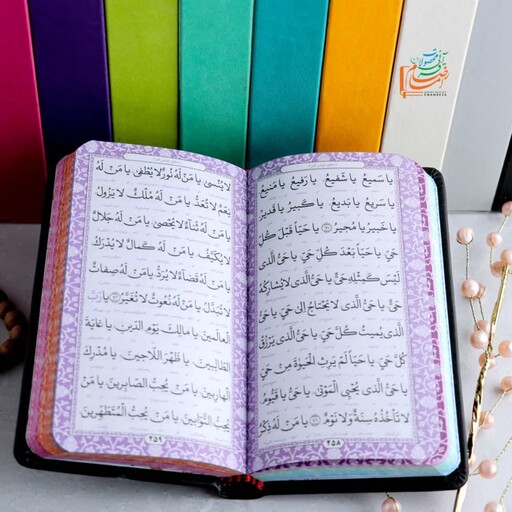 یا سَمیعُ یا شَفیعُ یا رَفیعُ یا مَنیعُ
یا سَریعُ یا بَدیعُ یا کَبیرُ یا قَدیرُ
یا خَبیرُ یا مُجیرُ یا حَیّاً قَبْلَ کُلِّ
حَیٍّ یا حَیّاً بَعْدَ کُلِّ حَیٍّ یا حَیُّ الَّذی
لَیْسَ کَمِثْلِهِ حَیٌّ یا حَیُّ الَّذی لایُشارِکُهُ
حَیٌّ یا حَیُّ الَّذی لایَحْتاجُ اِلی حَیٍّ یا حَیُّ
الَّذی یُمیتُ کُلَّ حَیٍّ یا حَیُّ الَّذی یَرْزُقُ
کُلَّ حَیٍّ یا حَیّاً لَمْ یَرِثِ الْحَیٰوةَ مِنْ حَیٍّ
یا حَیُّ الَّذی یُحْیِی الْمَوْتی یا حَیُّ یا قَیُّومُ
لا تَأْخُذُهُ سِنَةٌ وَلا نَوْمٌ یا مَنْ لَهُ ذِکْرٌ
۲۵۸
لا یُنْسی یا مَنْ لَهُ نُورٌ لا یُطْفی یا مَنْ لَهُ
نِعَمٌ لا تُعَدُّ یا مَنْ لَهُ مُلْکٌ لا یَزُولُ
یا مَنْ لَهُ ثَناءٌ لا یُحْصی یا مَنْ لَهُ جَلالٌ
لا یُکَیَّفُ یا مَنْ لَهُ کَمالٌ لا یُدْرَکُ
یا مَنْ لَهُ قَضاءٌ لا یُرَدُّ یا مَنْ لَهُ صِفاتٌ
لا تُبَدَّلُ یا مَنْ لَهُ نُعُوتٌ لا تُغَیَّرُ یا رَبَّ
الْعالَمینَ یا مالِکَ یَوْمِ الدّینِ یا غایَةَ
الطّالِبینَ یا ظَهْرَ اللّاجینَ یا مُدْرِکَ
الْهارِبینَ یا مَنْ یُحِبُّ الصّابِرینَ یا مَنْ
یُحِبُّ التَّوّابینَ یا مَنْ یُحِبُّ الْمُتَطَهِّرینَ
۲۵۹